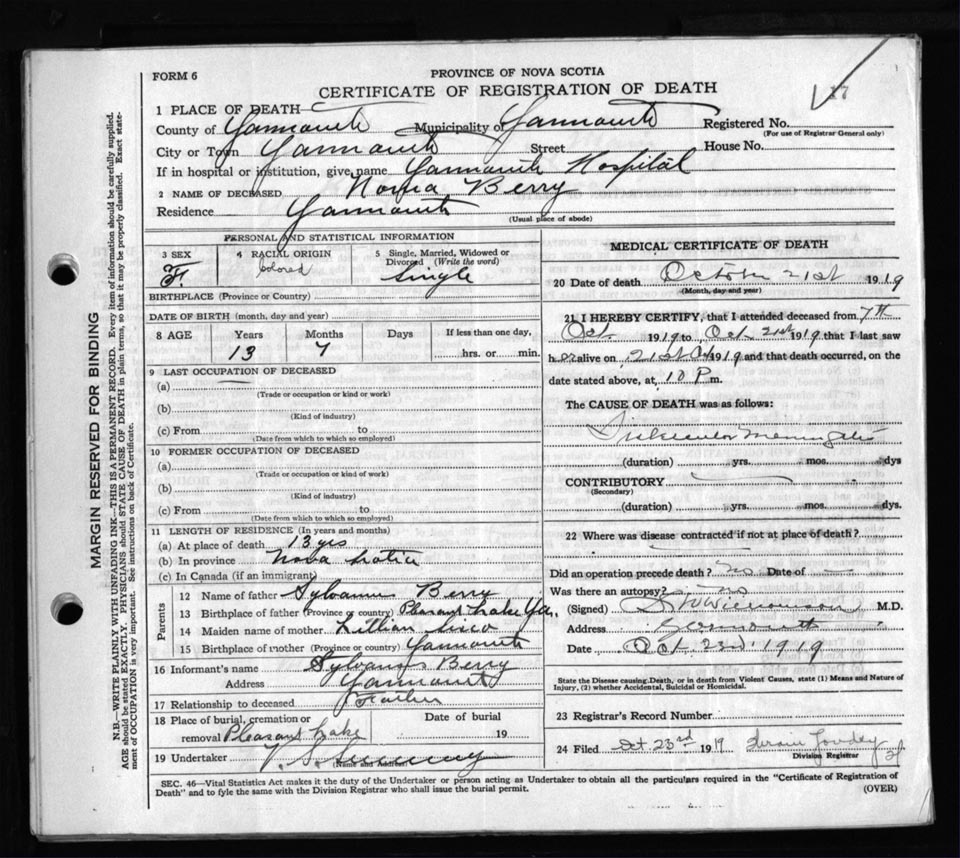 FORM 6
PROVINCE OF NOVA SCOTIA
CERTIFICATE OF REGISTRATION OF DEATH
1 PLACE OF DEATH
County of Yarmouth Municipality of Yarmouth Registered No.
(For use of Registrar General only)
City or Town Yarmouth Street House No.
If in hospital or institution, give name Yarmouth Hospital
2 NAME OF DECEASED Norma Berry
Residence Yarmouth
(Usual place of abode)
PERSONAL AND STATISTICAL INFORMATION
3 SEX F.
4 RACIAL ORIGIN Colored
5 Single, Married, Widowed or Divorced (Write the word) Single
BIRTHPLACE (Province or Country)
DATE OF BIRTH (month, day and year)
8 AGE Years Months Days If less than one day,
13 7 hrs. or min.
9 LAST OCCUPATION OF DECEASED
(a)
(Trade or occupation or kind or work)
(b)
(Kind of industry)
(c) From to
(Date from which to which so employed)
10 FORMER OCCUPATION OF DECEASED
(a)
(Trade or occupation or kind of work)
(b)
(Kind of industry)
(c) From to
(Date from which to which so employed)
11 LENGTH OF RESIDENCE (In years and months)
(a) At place of death 13 yrs
(b) In province Nova Scotia
(c) In Canada (if an immigrant)
Parents
12 Name of father Sylvanus Berry
13 Birthplace of father (Province or country) Pleasant Lake Yar.
14 Maiden name of mother Lillian
15 Birthplace of mother (Province or country) Yarmouth
16 Informant's name Sylvanus Berry
Address Yarmouth
17 Relationship to deceased Father
18 Place of burial, cremation or Date of burial
removal Pleasant Lake 19
19 Undertaker V. S. Sweeney
(Name and Address)
MEDICAL CERTIFICATE OF DEATH
20 Date of death October 21st 1919
(Month, day and year)
21 I HEREBY CERTIFY, that I attended deceased from 7th
Oct. 1919 to Oct. 21st 1919 that I last saw
her alive on 21st Oct 1919 and that death occurred, on the
date stated above, at 10 P m.
The CAUSE OF DEATH was as follows:
Tubercular Meningitis
(duration) yrs. mos. dys
CONTRIBUTORY
(Secondary)
(duration) yrs. mos. dys.
22 Where was disease contracted if not at place of death?
Did an operation precede death? No Date of
Was there an autopsy? no
(Signed) Williamson M.D.
Address Yarmouth
Date Oct. 23rd 1919
State the Disease causing Death, or in death from Violent Causes, state (1) Means and Nature of
Injury, (2) whether Accidental, Suicidal or Homicidal.
23 Registrar's Record Number
24 Filed Oct 23rd 1919
Division Registrar
SEC. 46—Vital Statistics Act makes it the duty of the Undertaker or person acting as Undertaker to obtain all the particulars required in the "Certificate of Registration of
Death" and to fyle the same with the Division Registrar who shall issue the burial permit.
(OVER)
MARGIN RESERVED FOR BINDING
N.B.—WRITE PLAINLY, WITH UNFADING INK—THIS IS A PERMANENT RECORD. Every item of information should be carefully supplied.
AGE should be stated EXACTLY. PHYSICIANS should STATE CAUSE OF DEATH in plain terms, so that it may be properly classified. Exact state-
ment of OCCUPATION is very important. See instructions on back of Certificate.